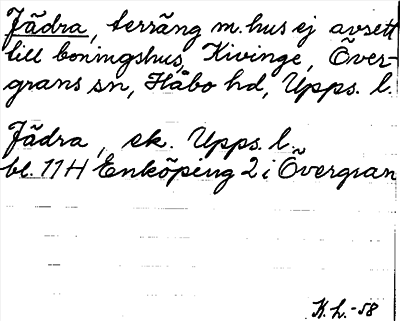 Jädra, terräng m. hus ej avsett
till boningshus, Kivinge, Över-
grans sn, Håbo hd, Upps. l.
Jädra, ek. Upps. l.
bl. 11H Enköping 2 i Övergran
K. L. -58